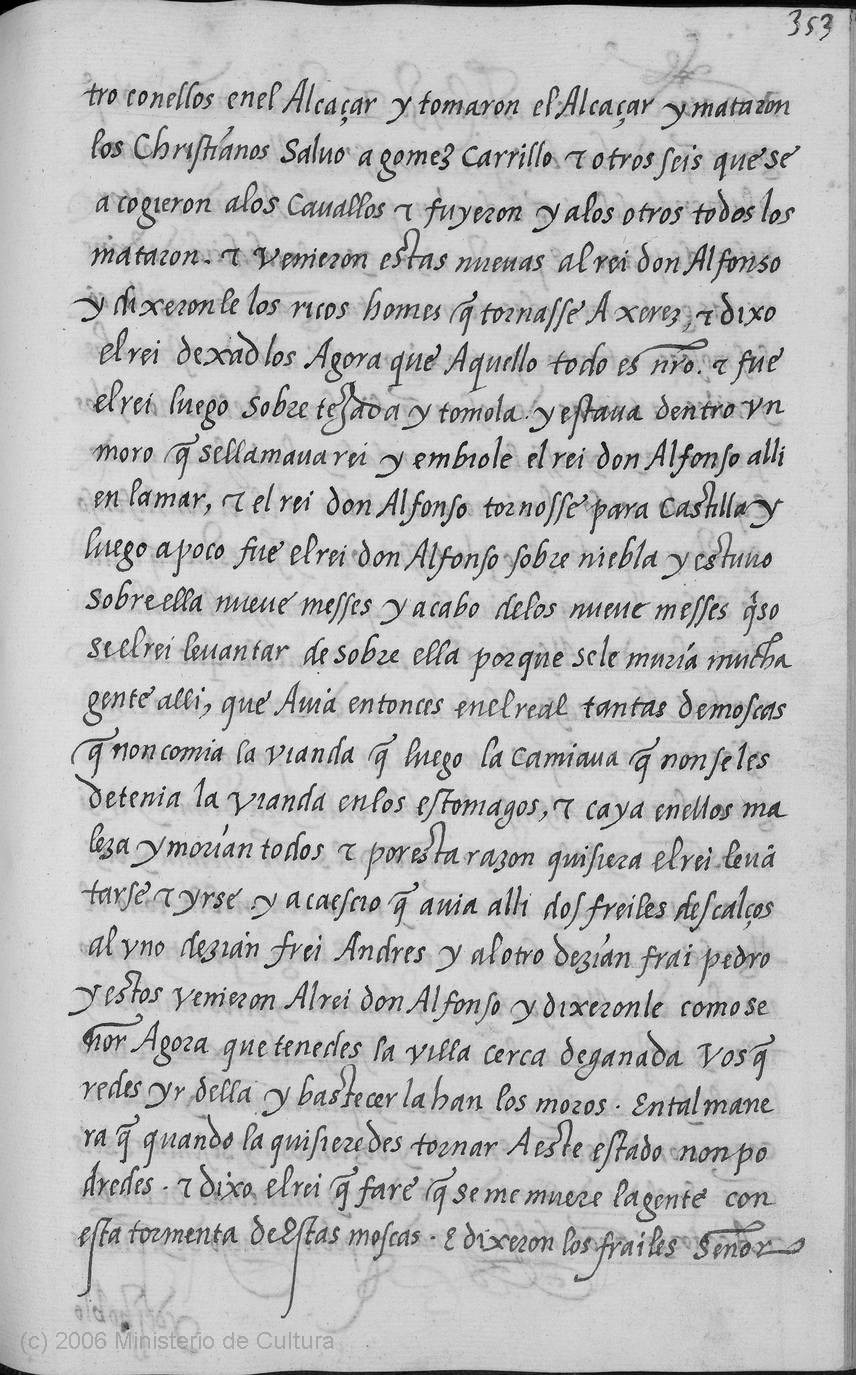 353
tro conellos enel Alcaçar y tomaron el Alcaçar y mataron
los Christianos Saluo a gomez Carrillo τ otros seis que se
acogieron alos Cauallos τ fuyeron y alos otros todos los
mataron. τ Venieron estas nueuas al rei don Alfonso
y dixeronle los ricos homes q̃ tornasse A xerez, τ dixo
el rei dexadlos Agora que Aquello todo es nr̃o. τ fue
el rei luego sobre tezada y tomola. y estaua dentro vn
moro q̃ sellamaua rei y embiole el rei don Alfonso alli
en lamar, τ el rei don Alfonso tornosse para Castilla y
luego apoco fue el rei don Alfonso sobre niebla y estuuo
sobre ella nueue messes y acabo delos nueue messes q̃so
se el rei leuantar de sobre ella porque sele muria mucha
gente alli, que Auia entonces enel real tantas demoscas
q̃ non comia la vianda q̃ luego la Camiaua q̃ non se les
detenia la vianda enlos estomagos, τ caya enellos ma
leza y morian todos τ por esta razon quisiera el rei leuã
tarse τ yrse y acaescio q̃ auia alli dos freiles descalços
al vno dezian frei Andres y al otro dezian frai pedro
y estos venieron Al rei don Alfonso y dixeronle como se
ñor Agora que tenedes la villa cerca deganada Vos q̃
redes yr della y bastecer la han los moros. En tal mane
ra q̃ quando la quisieredes tornar A este estado non po
dredes. τ dixo el rei q̃ fare q̃ se me muere la gente con
esta tormenta de Estas moscas. E dixeron los frailes Señor
(c) 2006 Ministerio de Cultura